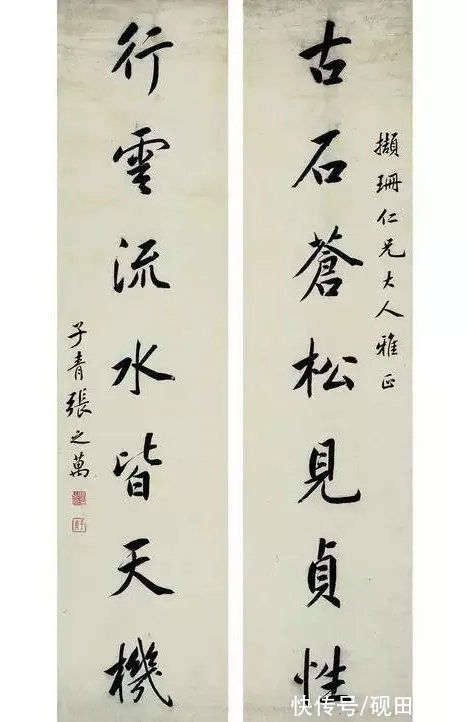 擷珊仁兄大人雅正
古石蒼松見貞性
行雲流水皆天機
子青張之萬
快传号/砚田